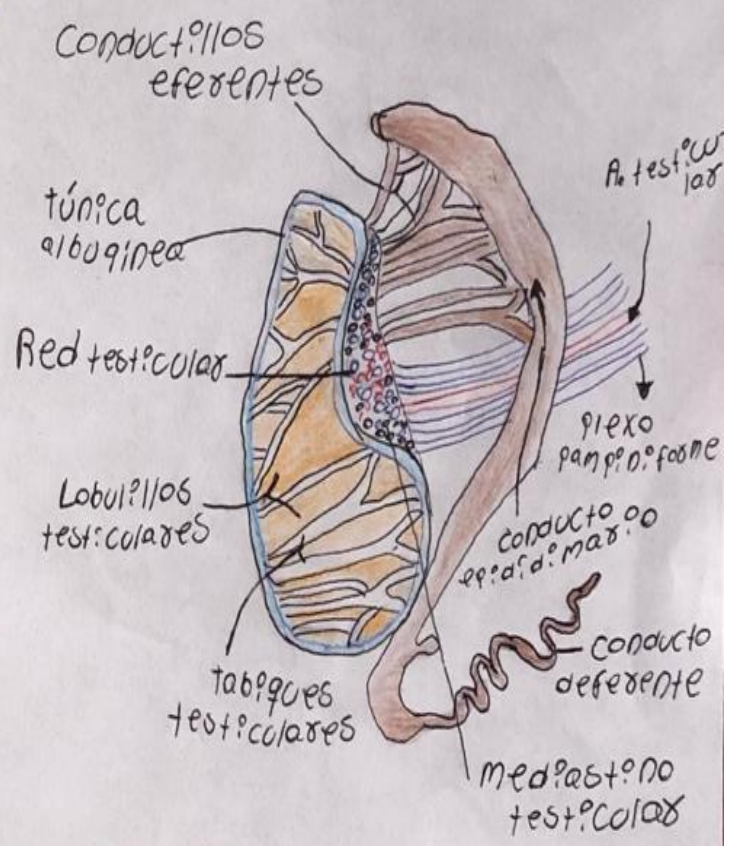 Conductillos
eferentes
A. testicu
lar
túnica
albuginea
Red testicular
plexo
pampiniforme
Lobulillos
testiculares
conducto
epididimario
conducto
deferente
tabiques
testiculares
mediastino
testicular